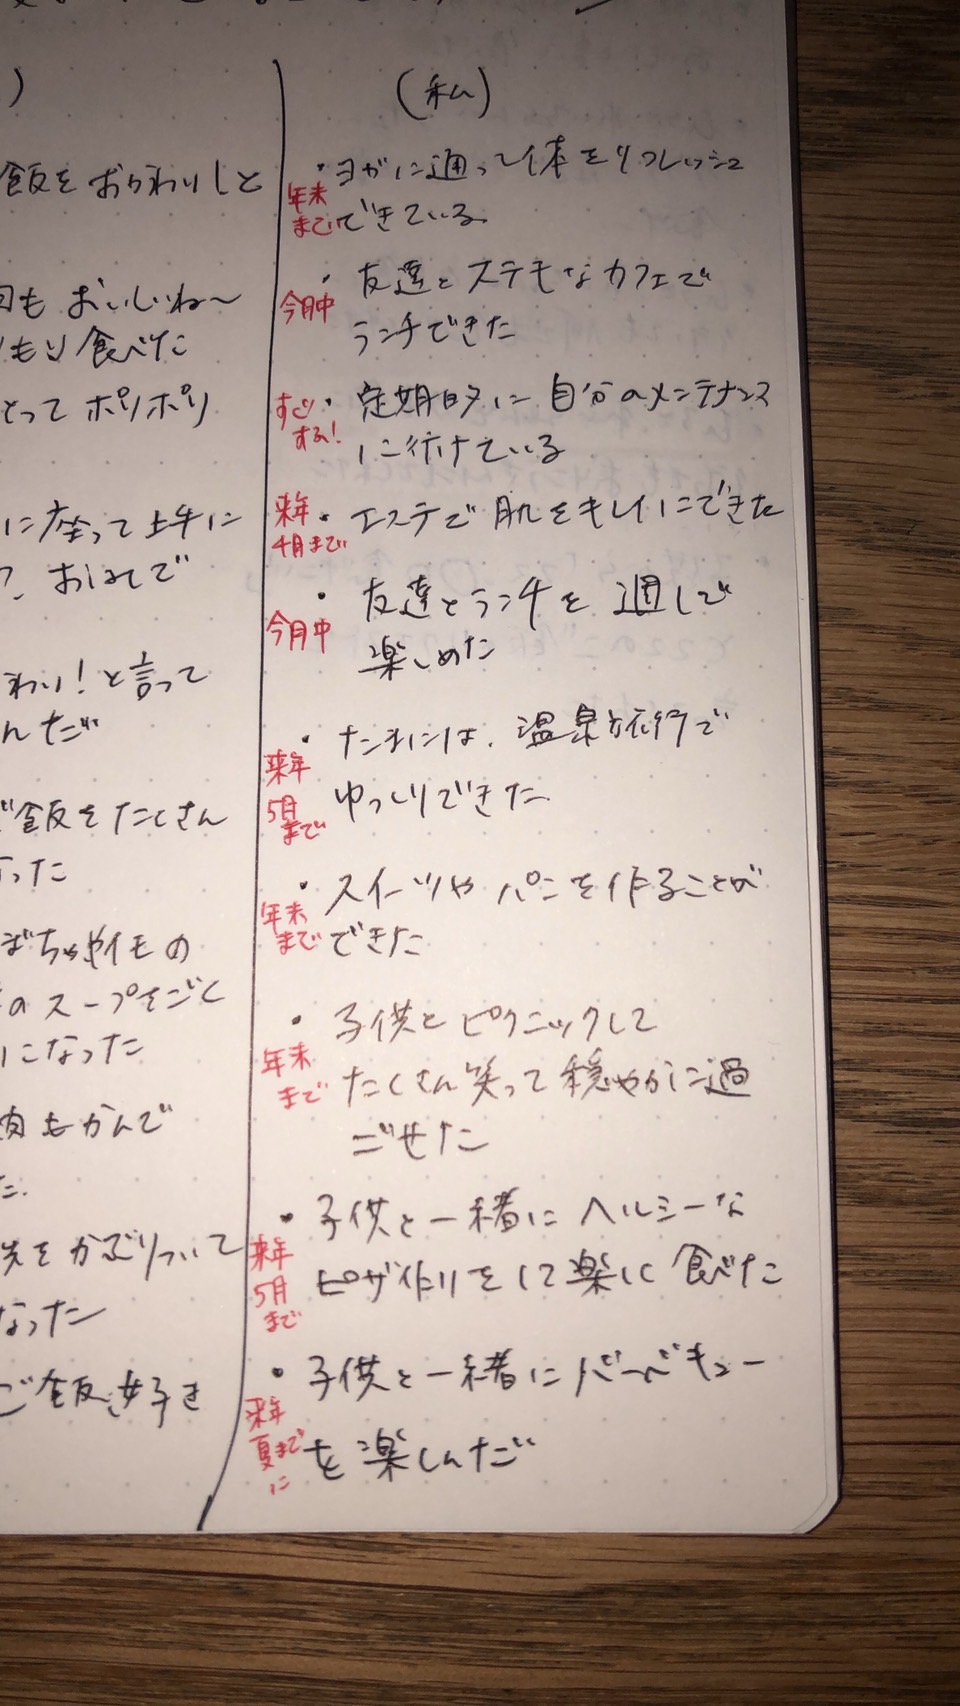 )
飯をおかわりしと
もおいしいね〜
もりもり食べた
とってポリポリ
に座って上手に
おはしで
わり!と言って
んだ
ご飯をたくさん
なった
ぼちゃやイモの
のスープをごく
になった
肉もかんで
た.
先をかぶりついて
なった
ご飯好き
(私)
・ヨガに通って体をリフレッシュ
年末
までに
できている。
・友達とステキなカフェで
今月中
ランチできた
すぐ
する!
・定期的に自分のメンテナンス
に行けている
来年
4月まで
・エステで肌をキレイにできた
・友達とランチを通して
今月中
楽しめた
・たまには、温泉旅行で
来年
5月
まで
ゆっくりできた
・スイーツやパンを作ることが
年末
まで
できた
・子供とピクニックして
年末
まで
たくさん笑って穏やかに過
ごせた
・子供と一緒にヘルシーな
来年
5月
まで
ピザ作りをして楽しく食べた
・子供と一緒にバーベキュー
来年
夏まで
に
を楽しんだ